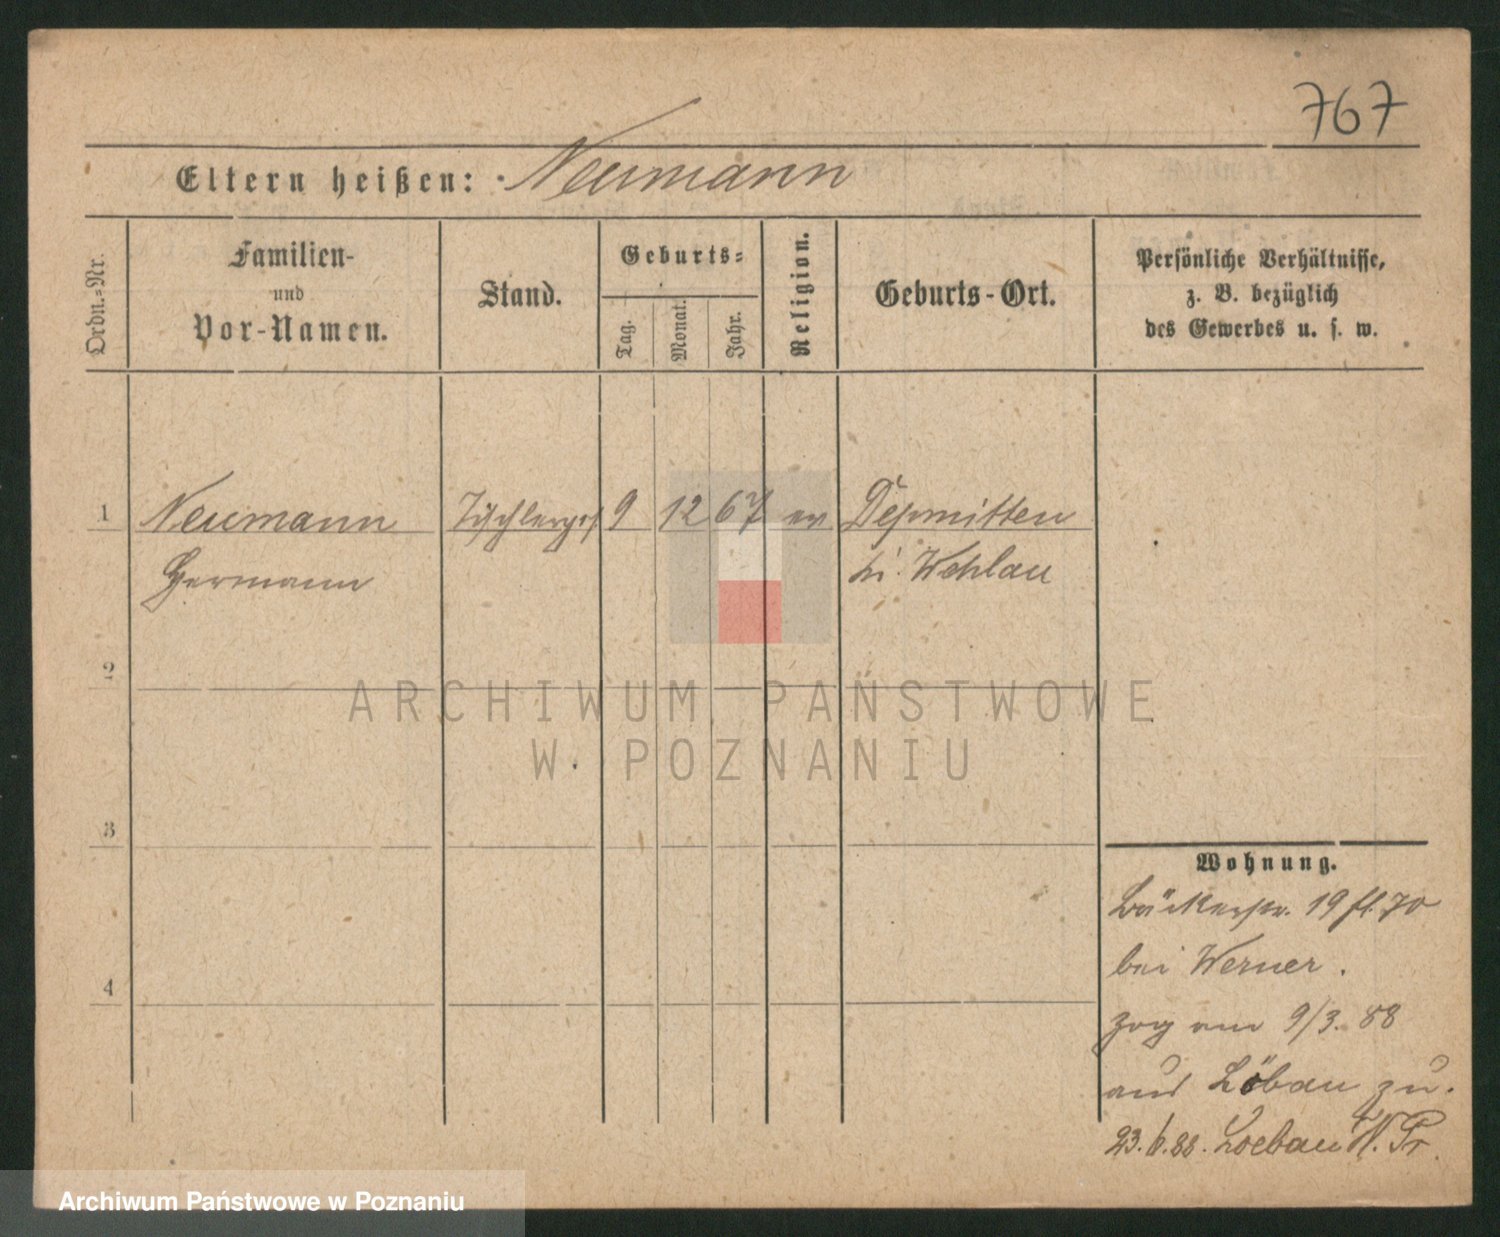 767
Eltern heißen: Neumann
Ordn.-Nr.
Familien-
und
Vor-Namen.
Stand.
Geburts-
Tag.
Monat.
Jahr.
Religion.
Geburts-Ort.
Persönliche Verhältnisse,
z. B. bezüglich
des Gewerbes u. s. w.
1 Neumann Tischlerges 9 12 67 ev Depmitten
Hermann Kr. Wehlau
2
3
4
Wohnung.
Bäckerstr. 19 fl. 70
bei Werner.
zog am 9/3. 88
aus Löbau zu.
23.6.88. Loebau W. Pr.
ARCHIWUM PAŃSTWOWE
W POZNANIU
Archiwum Państwowe w Poznaniu